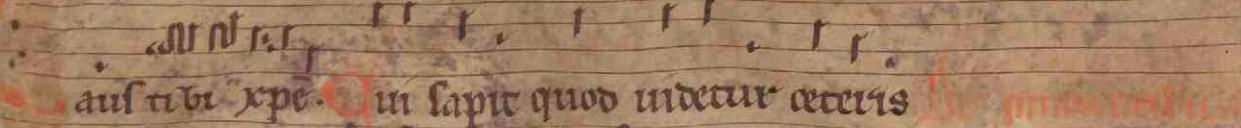 Laus tibi xp̄e. Qui sapit quod uidetur ceteris